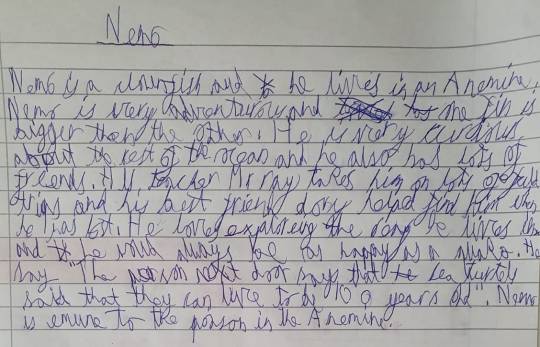 Nemo
Nemo is a clownfish and he lives in an Anemine.
Nemo is very adventurous and one fin is
bigger then the other. He is very curious
about the rest of the ocean and he also has lots of
freends. His teacher Mr ray takes him on lots of feild
trips and his best friend dory helped find him when
he was lost. He loves exploreing the he lives
and he would always be as happy as a. He
say "The person next door says that sea turtols
said that they can live to be 100 years old". Nemo
is emune to the poason in the Anemine.